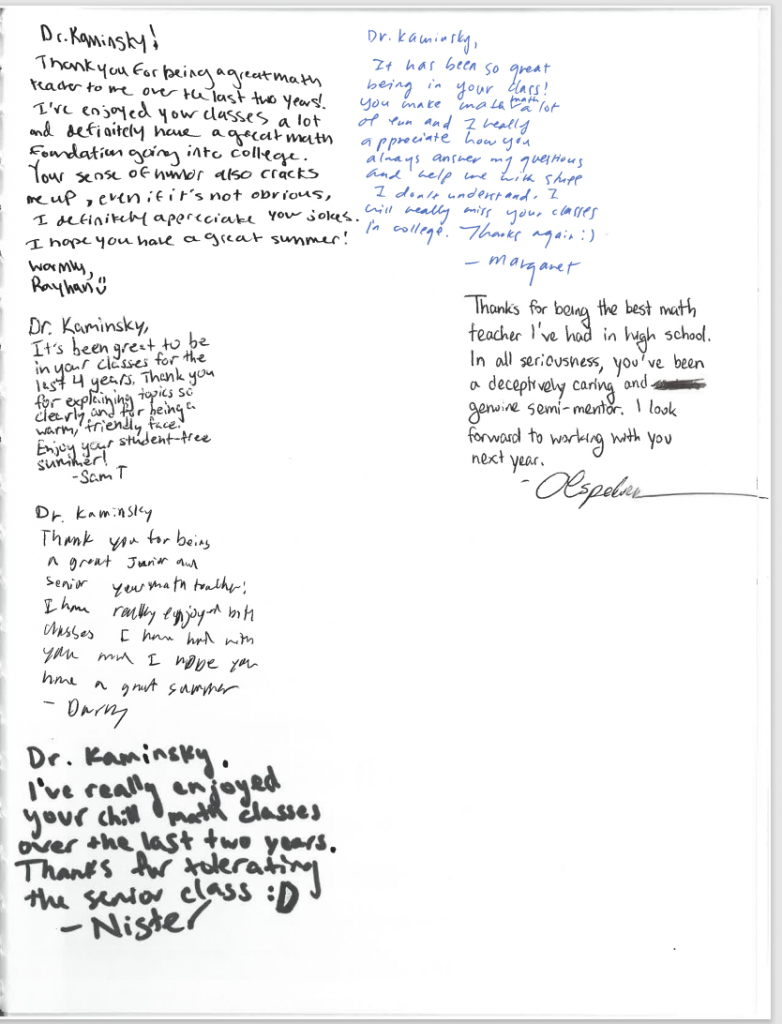 Dr. Kaminsky!
Thank you for being a great math
teacher to me over the last two years!
I've enjoyed your classes a lot
and definitely have a great math
foundation going into college.
Your sense of humor also cracks
me up, even if it's not obvious,
I definitely appreciate your jokes.
I hope you have a great summer!
Warmly,
Rayhan
Dr. Kaminsky,
It has been so great
being in your class!
You make math a lot
of fun and I really
appreciate how you
always answer my questions
and help me with stuff
I don't understand. I
will really miss your classes
in college. Thanks again :)
- Margaret
Thanks for being the best math
teacher I've had in high school.
In all seriousness, you've been
a deceptively caring and
genuine semi-mentor. I look
forward to working with you
next year.
Dr. Kaminsky,
It's been great to be
in your classes for the
last 4 years. Thank you
for explaining topics so
clearly and for being a
warm, friendly face.
Enjoy your student-free
summer!
- Sam T
Dr. Kaminsky
Thank you for being
a great Junior and
Senior year math teacher!
I have really enjoyed both
classes I have had with
you and I hope you
have a great summer
-
Dr. Kaminsky.
I've really enjoyed
your chill math classes
over the last two years.
Thanks for tolerating
the senior class :D
- Nister